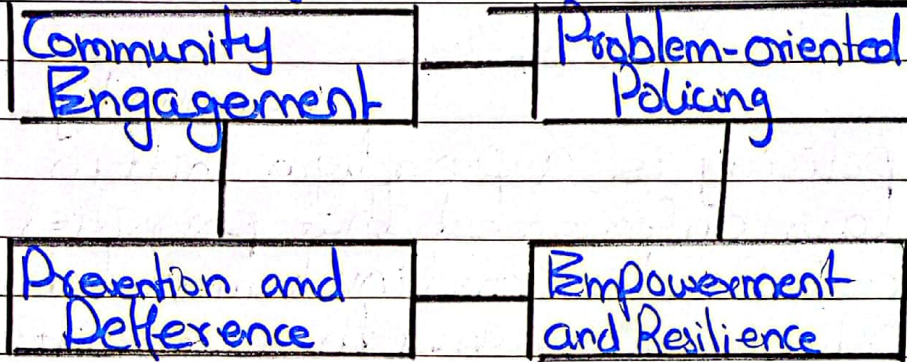 Community
Engagement
Problem-oriented
Policing
Prevention and
Defference
Empowerment
and Resilience